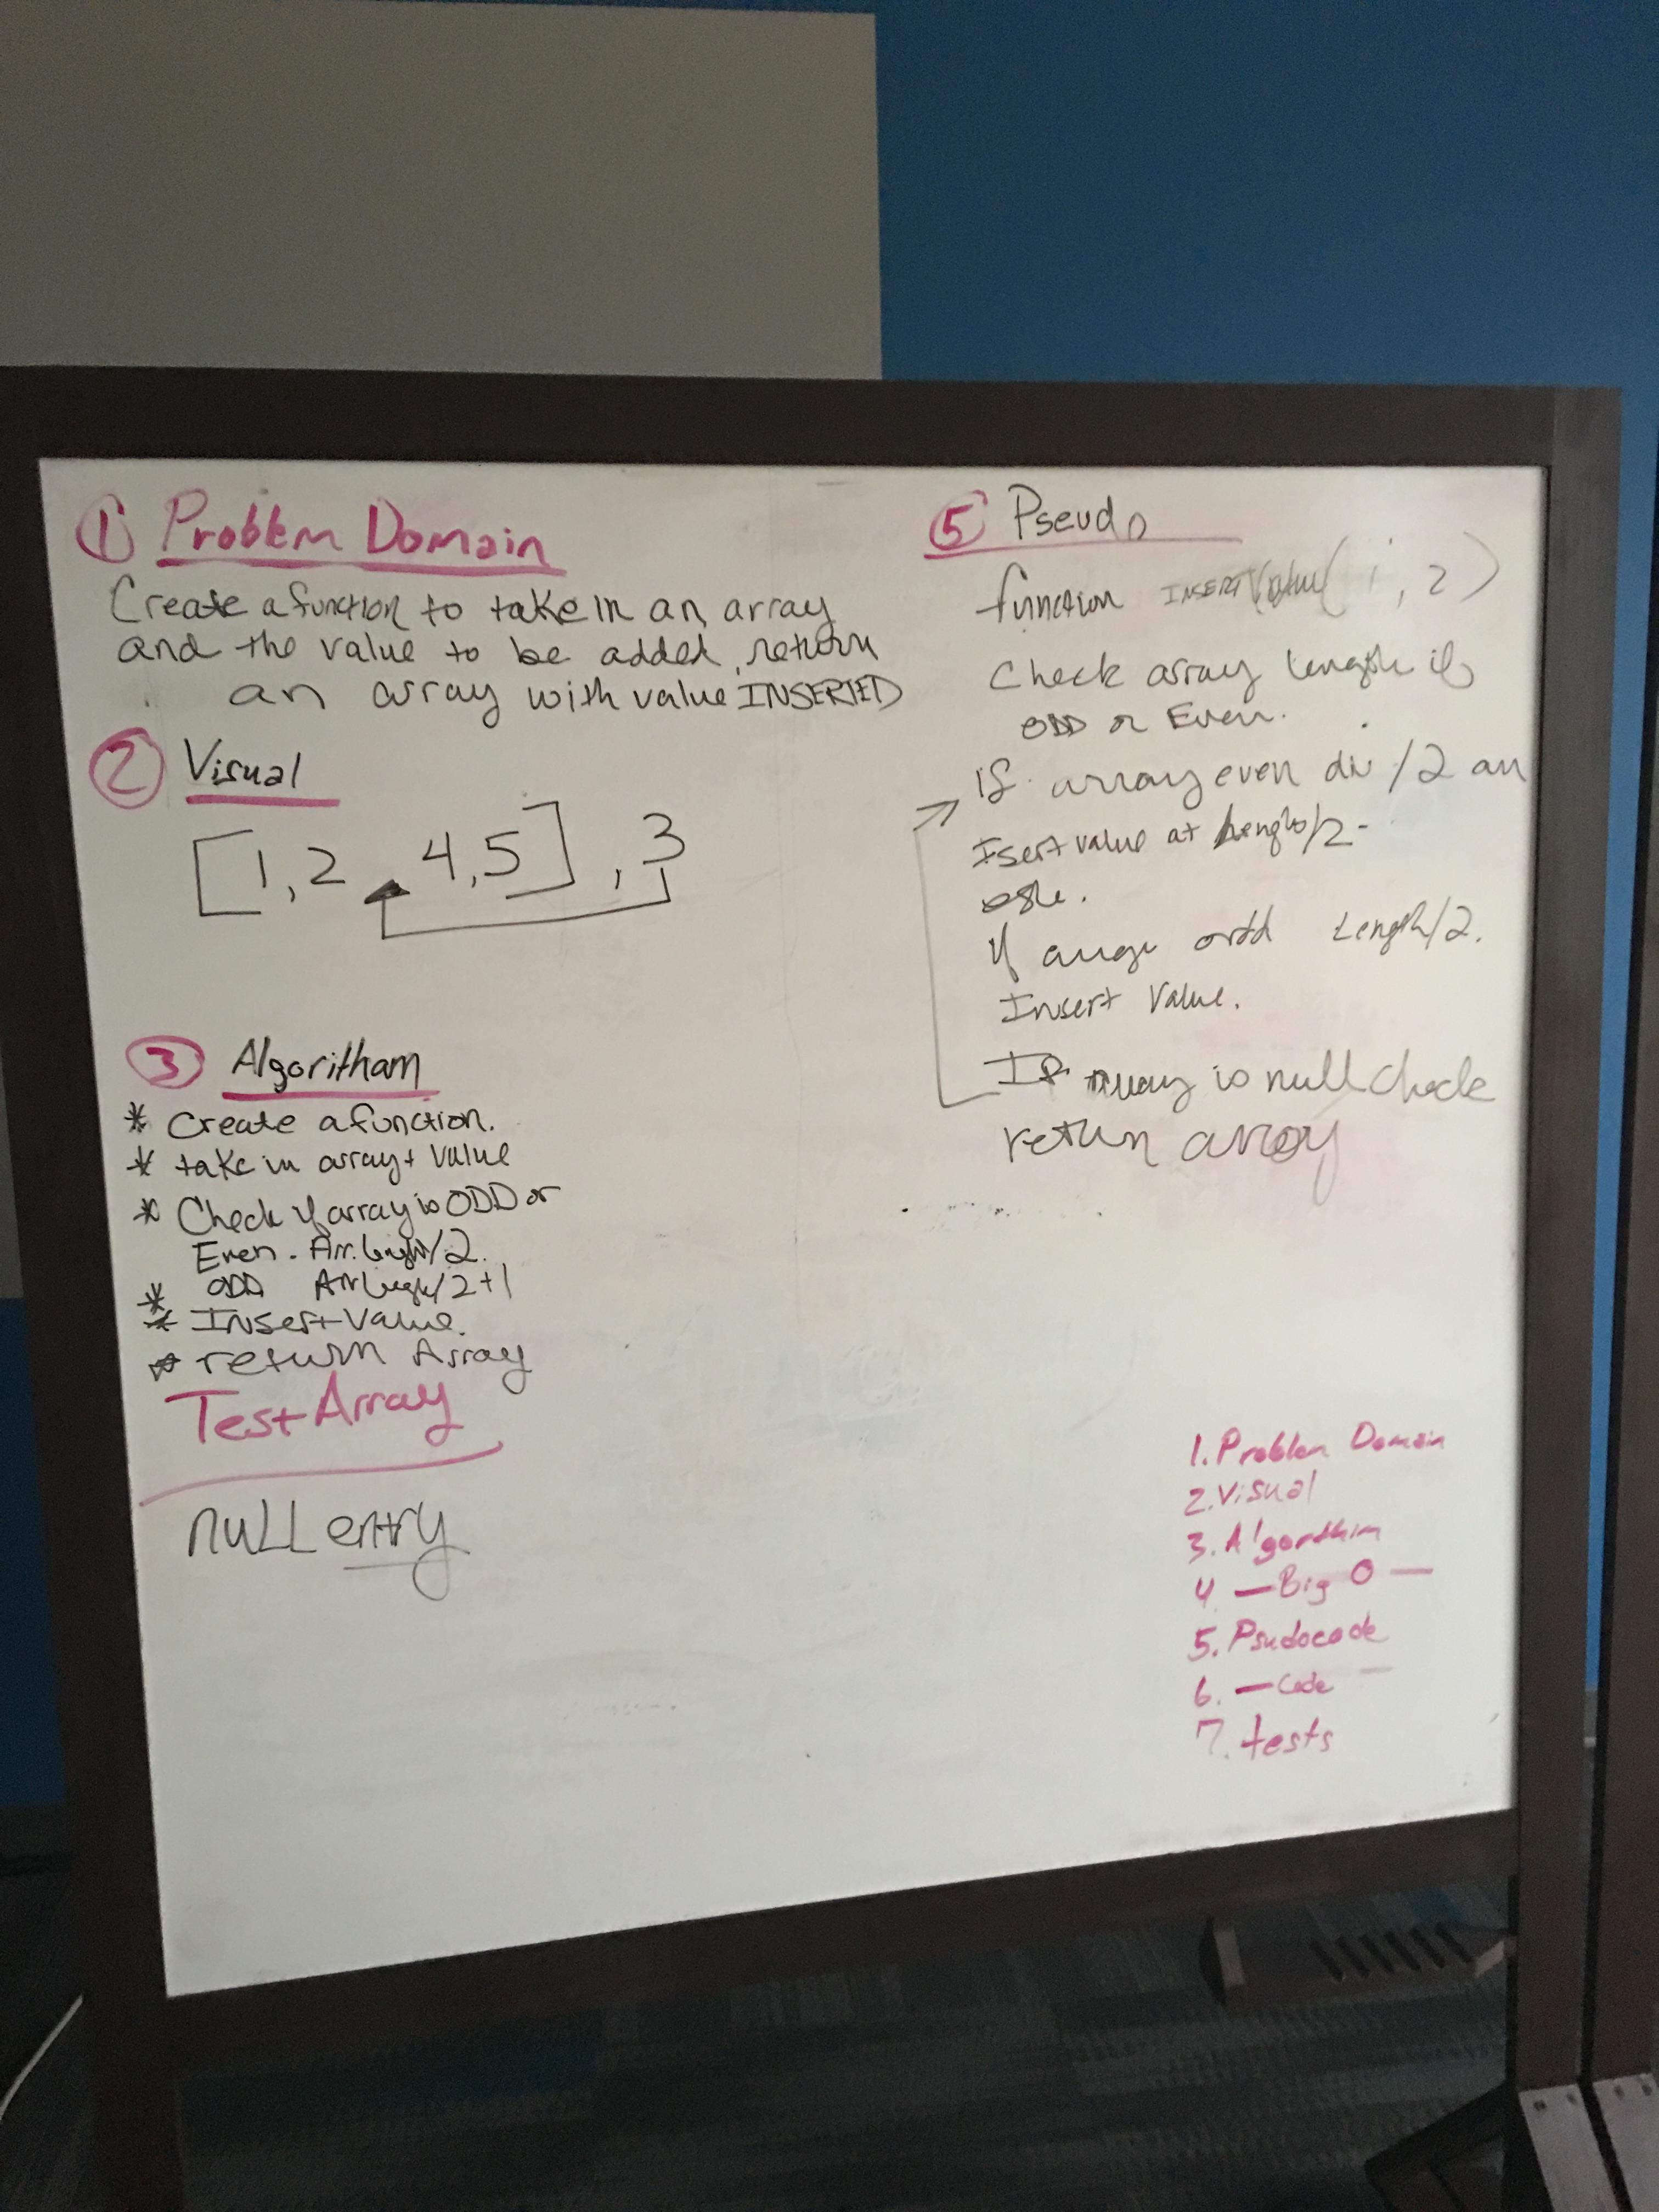 ① Problem Domain
Create a function to take in an array
and the value to be added, return
an array with value INSERTED
② Visual
[1, 2 4, 5], 3
③ Algoritham
* Create a function.
* take in array + value
* Check if array is ODD or
Even. Arr.length/2.
* ODD Arr length/2+1
* Insert value.
* return Array
Test Array
NULL entry
⑤ Pseudo
function INSERT( , 2)
Check array length is
ODD or Even.
if array even div /2 an
Isert value at length/2-
else.
if array odd Length/2.
Insert Value.
If array is null check
return array
1. Problem Domain
2. Visual
3. Algorithim
4. - Big O -
5. Psudocode
6. - Code -
7. tests